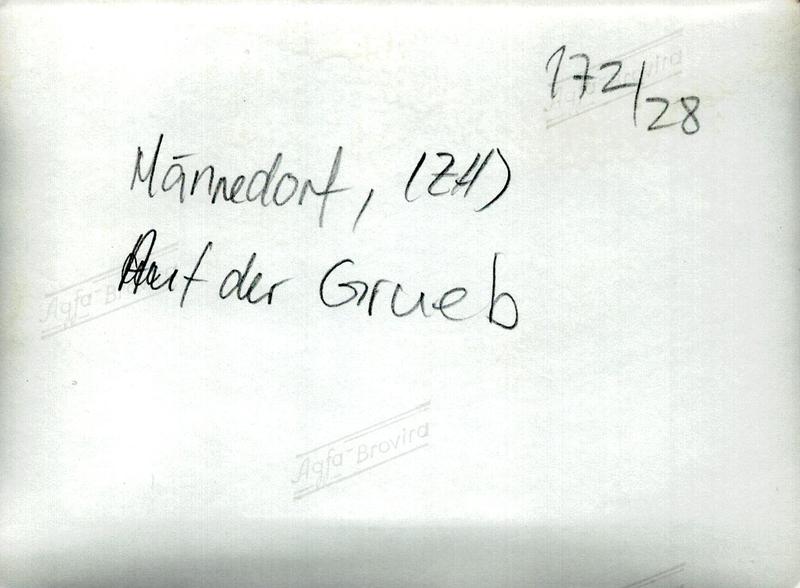 172/28
Männedorf, (ZH)
Auf der Grueb
Agfa-Brovira
Agfa-Brovira
Agfa-Brovira